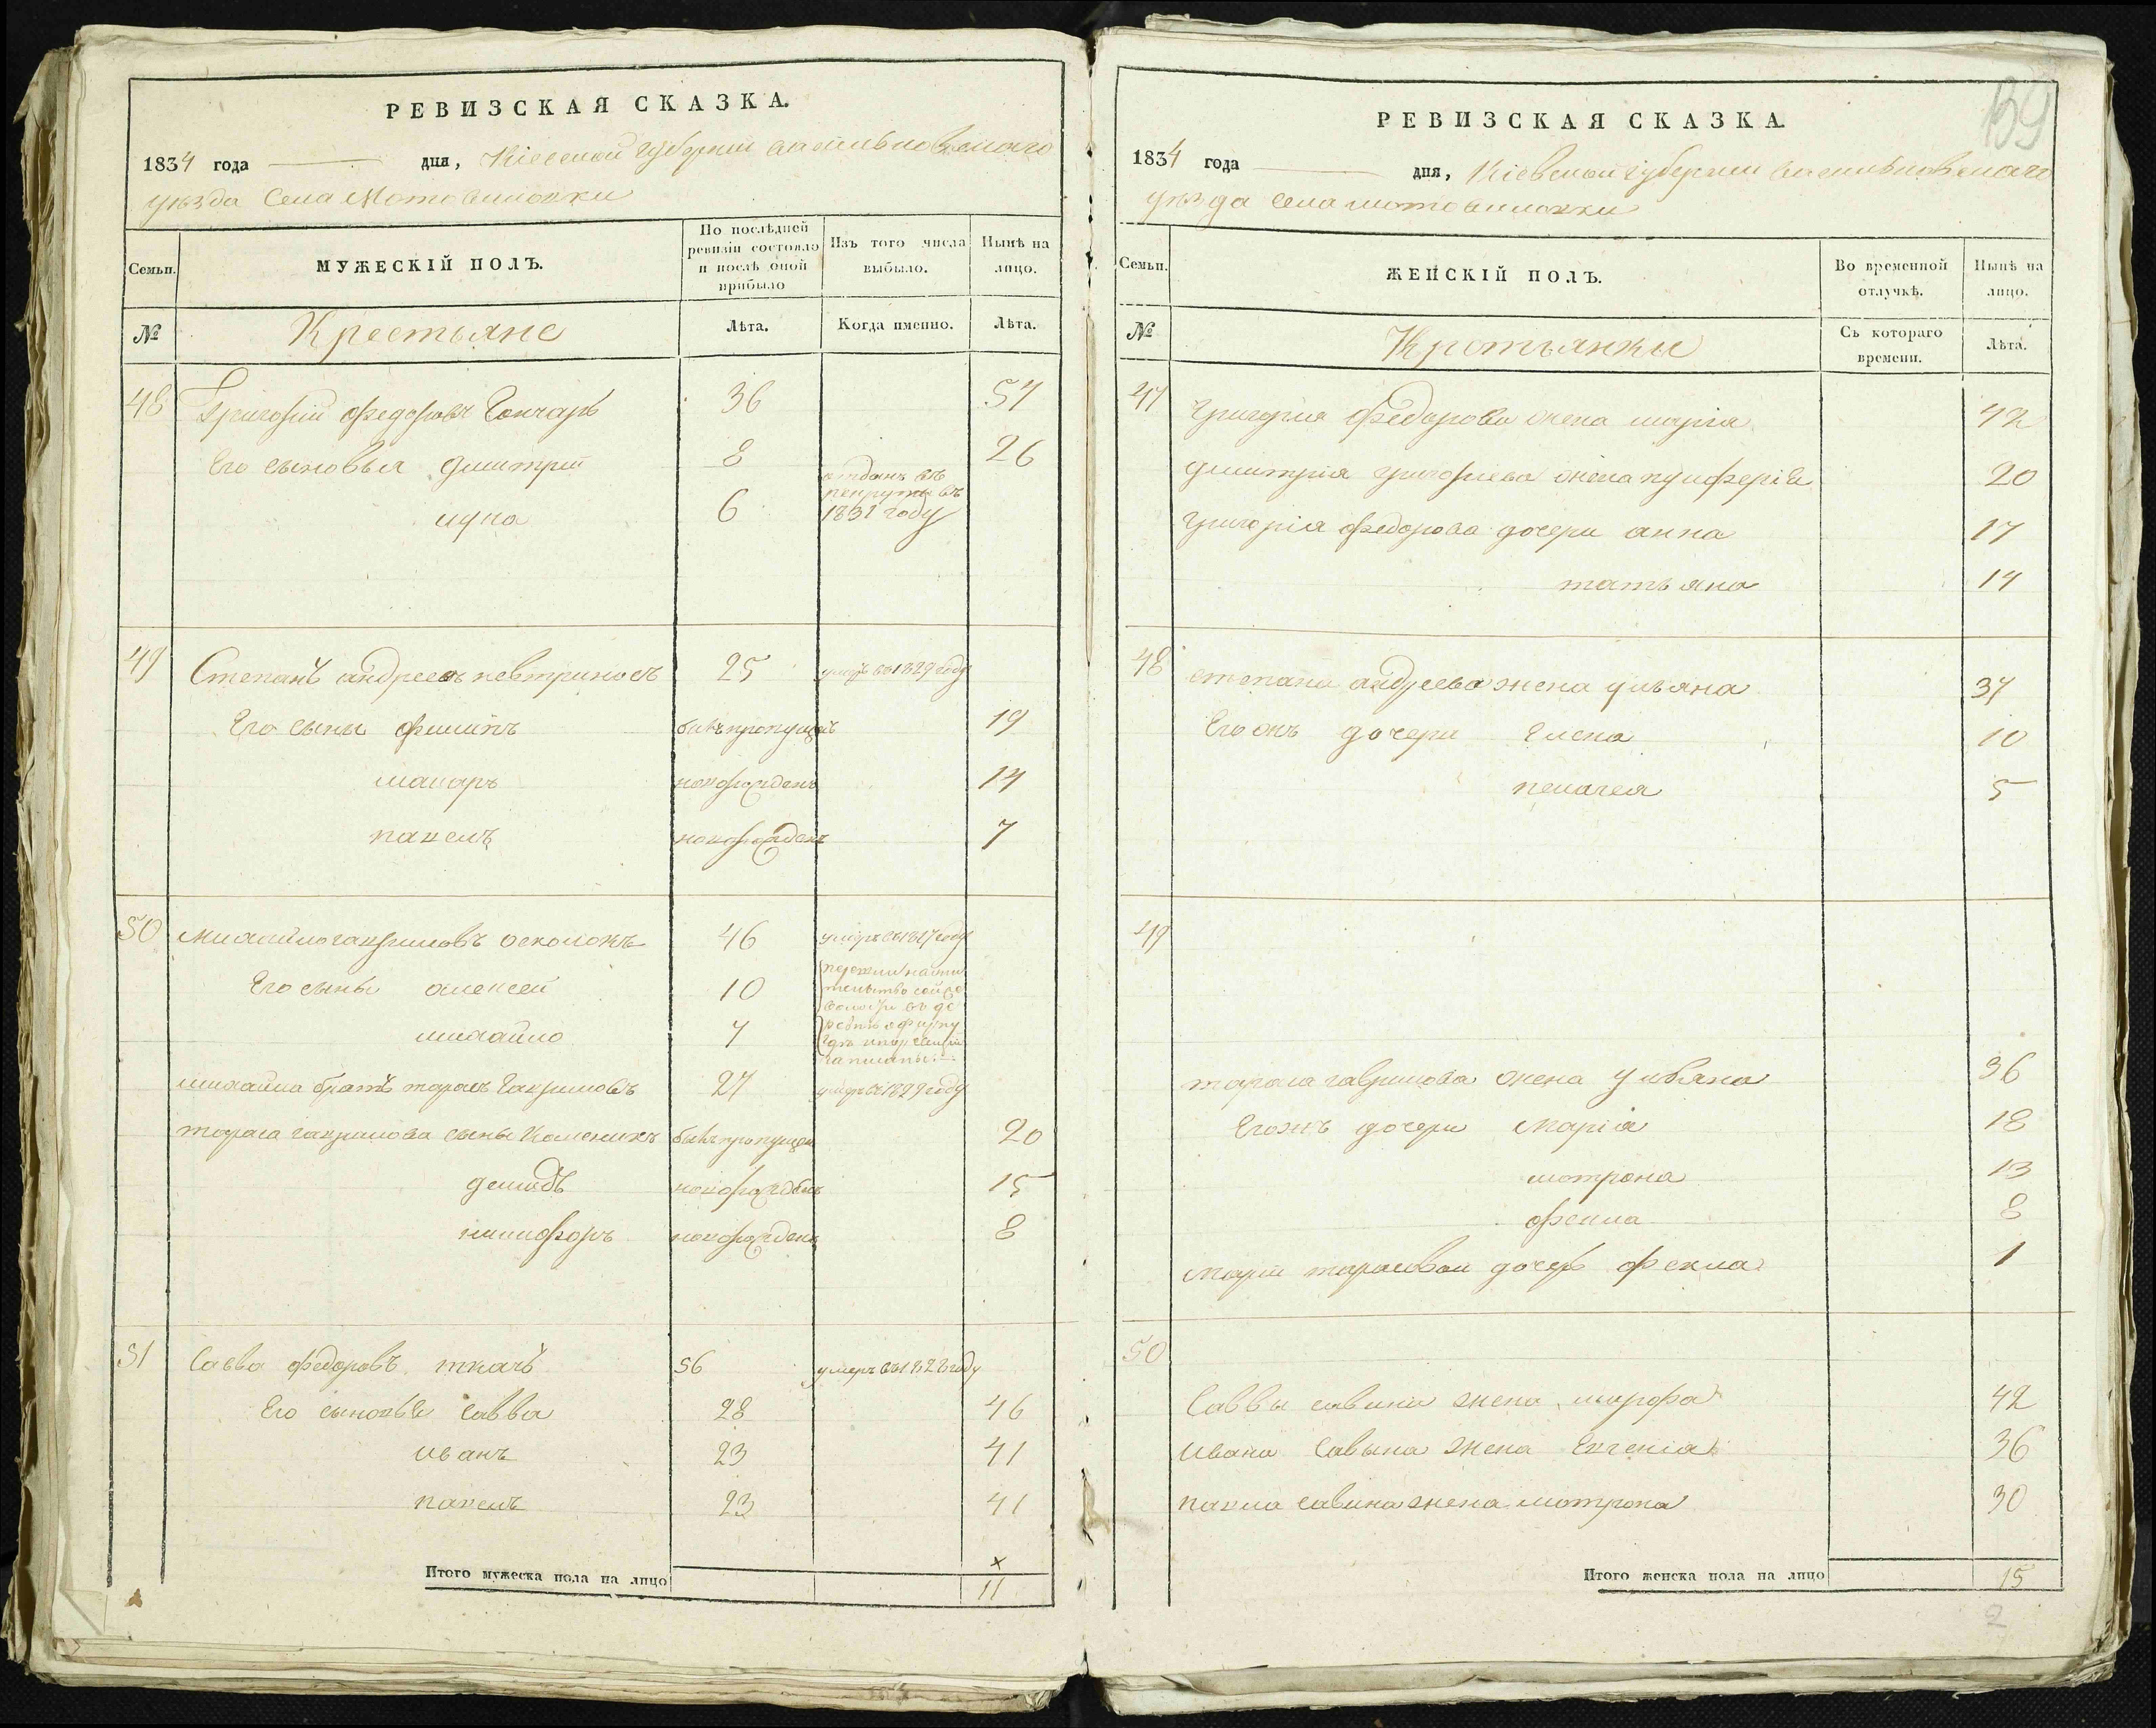 РЕВИЗСКАЯ СКАЗКА.
1834 года дня, Кіевской губерніи васильковскаго
уезда Села Мотовиловки
Семьи.
МУЖЕСКІЙ ПОЛЪ.
По послѣдней ревизіи состояло и послѣ оной прибыло
Изъ того числа выбыло.
Нынѣ на лицо.
№
Крестьяне
Лѣта.
Когда именно.
Лѣта.
48 Григорій федоровъ Гончаръ 36 54
Его сыновья дмитрій 8 26
лука 6 отданъ въ рекруты въ 1831 году
49 Степанъ андреевъ 25 умеръ въ 1829 году
Его сыны филипъ былъ пропущенъ 19
макаръ новорожденъ 14
павелъ новорожденъ 7
50 михайло гавриловъ 46 умеръ в 1817 году
Его сыны алексей 10
михайло 7
михайла братъ тарасъ Гавриловъ 27 умеръ в 1829 году
тараса гаврилова сыны былъ пропущен 20
демидъ новорожденъ 15
никифоръ новорожденъ 8
51 Савва федоровъ ткачъ 56 умеръ въ 1828 году
Его сыновье савва 28 46
иванъ 23 41
павелъ 23 41
Итого мужеска пола на лицо 11
139
РЕВИЗСКАЯ СКАЗКА
1834 года дня, Кіевской губерніи васильковскаго
уезда села мотовиловки
Семьи.
ЖЕНСКІЙ ПОЛЪ.
Во временной отлучкѣ.
Нынѣ на лицо.
№
Крстьянки
Съ котораго времени.
Лѣта.
47 григорія федорова жена марія 42
дмитрія григорьева жена пулферія 20
григорія федорова дочери анна 17
татьяна 14
48 степана андреева жена ульяна 37
Его жъ дочери Елена 10
пелагея 5
49
тараса гаврилова жена ульяна 36
Егожъ дочери Марія 18
мотрона 13
фекла 8
Маріи тарасовой дочерь фекла 1
50
Саввы савина жена марфа 42
ивана Савына жена Евгенія 36
павла савина жена мотрона 30
Итого женска пола на лицо 15
2